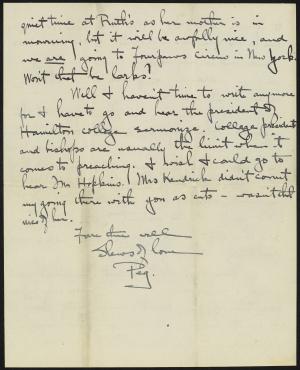 quiet time at Ruth's as her mother is in
mourning, but it will be awfully nice, and
we are going to Fourpaws Circus in New York.
Won't that be larks?
Well I haven't time to write anymore
for I have to go and hear the president of
Hamilton College sermonize. College presidents
and bishops are usually the limit when it
comes to preaching. I wish I could go to
hear Dr Hopkins. Mrs Kendrick didn't count
my going there with you as cuts – wasn't that
nice of her.
Fare thee well
Slews of love
Peg.